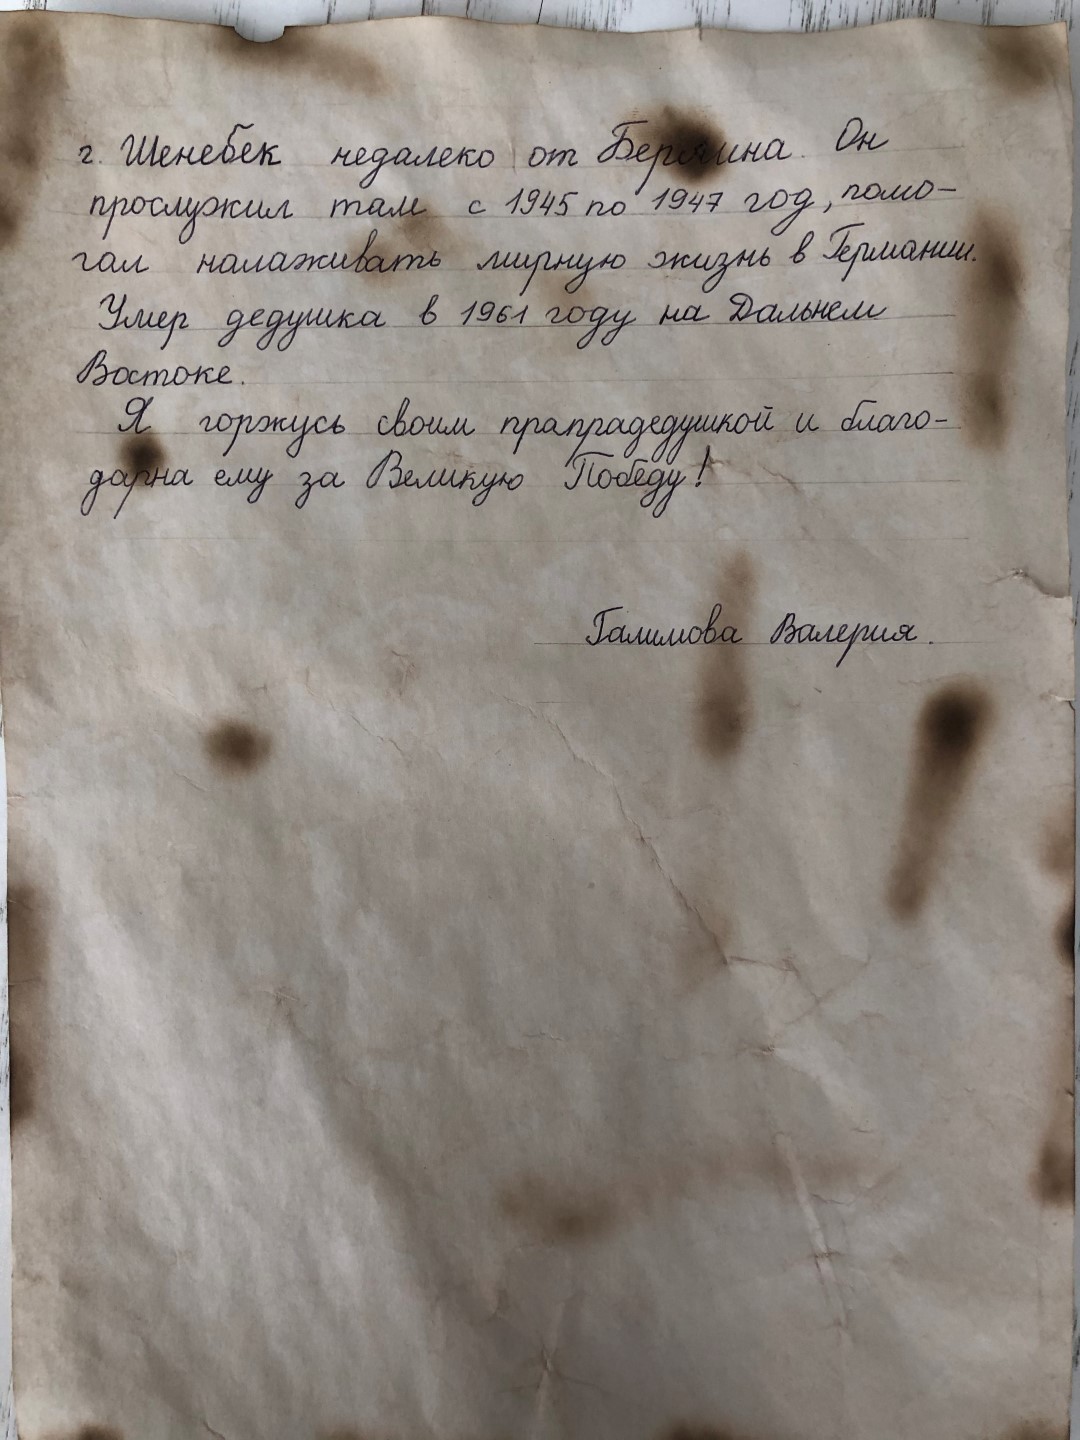 г. Шенебек недалеко от Берлина. Он
прослужил там с 1945 по 1947 год, помо-
гал налаживать мирную жизнь в Германии.
Умер дедушка в 1961 году на Дальнем
Востоке.
Я горжусь своим прапрадедушкой и благо-
дарна ему за Великую Победу!
Галимова Валерия.